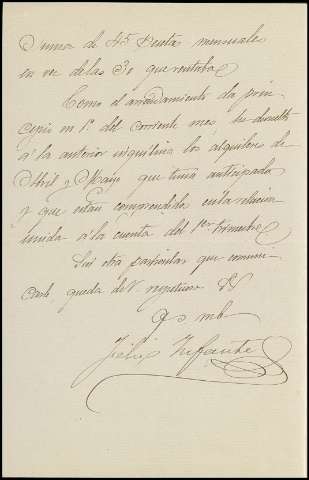 suma de 45 Pesetas mensuales
en vez de las 30 que rentaba.
Como el arrendamiento da prin-
cipio en 1º del corriente mes, he devuelto
á la anterior inquilina los alquileres de
Abril y Mayo que tenia anticipados
y que estan comprendidos en la relacion
unida á la cuenta del 1er trimestre.
Sin otro particular que comuni-
carle, queda de V. repetuoso SS
q s mb
Felix Infante